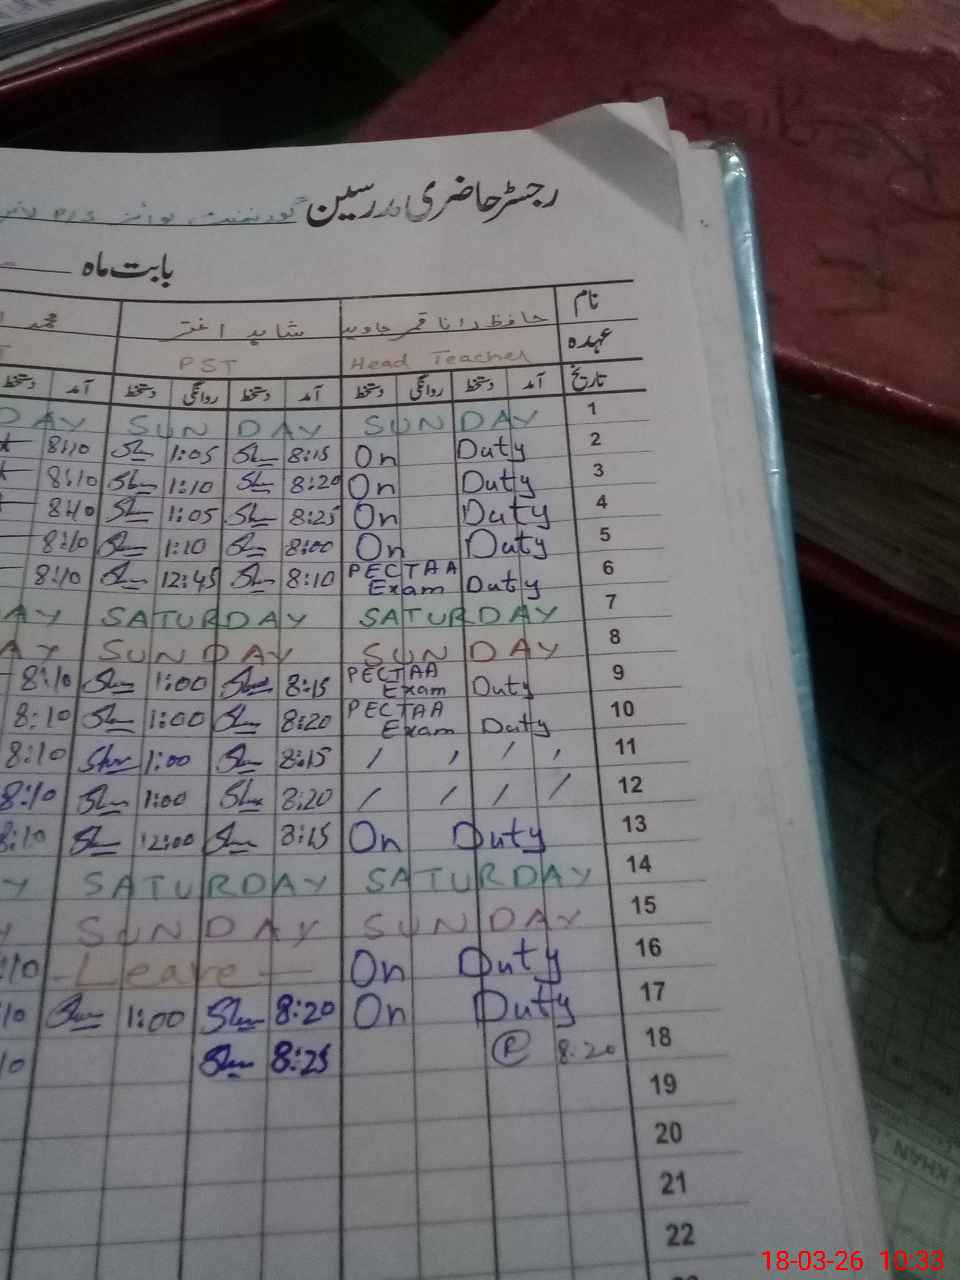 رجسٹر حاضری مدرسین گورنمنٹ بوائز P/S
بابت ماہ
نام حافظ رانا قمر جاوید شاہد اختر محمد
عہدہ Head Teacher PST
تاریخ آمد دستخط روانگی دستخط آمد دستخط روانگی دستخط آمد دستخط
DAY SUNDAY SUNDAY 1
8:10 1:05 8:15 On Duty 2
8:10 1:10 8:20 On Duty 3
8:10 1:05 8:25 On Duty 4
8:10 1:10 8:00 On Duty 5
8:10 12:45 8:10 PECTAA Exam Duty 6
AY SATURDAY SATURDAY 7
AY SUNDAY SUNDAY 8
8:10 1:00 8:15 PECTAA Exam Duty 9
8:10 1:00 8:20 PECTAA Exam Duty 10
8:10 1:00 8:15 / , / , 11
8:10 1:00 8:20 / / / / 12
8:10 12:00 8:15 On Duty 13
Y SATURDAY SATURDAY 14
Y SUNDAY SUNDAY 15
:10 - Leave - On Duty 16
10 1:00 8:20 On Duty 17
10 8:25 8:20 18
19
20
21
22
KHAN
18-03-26 10:33